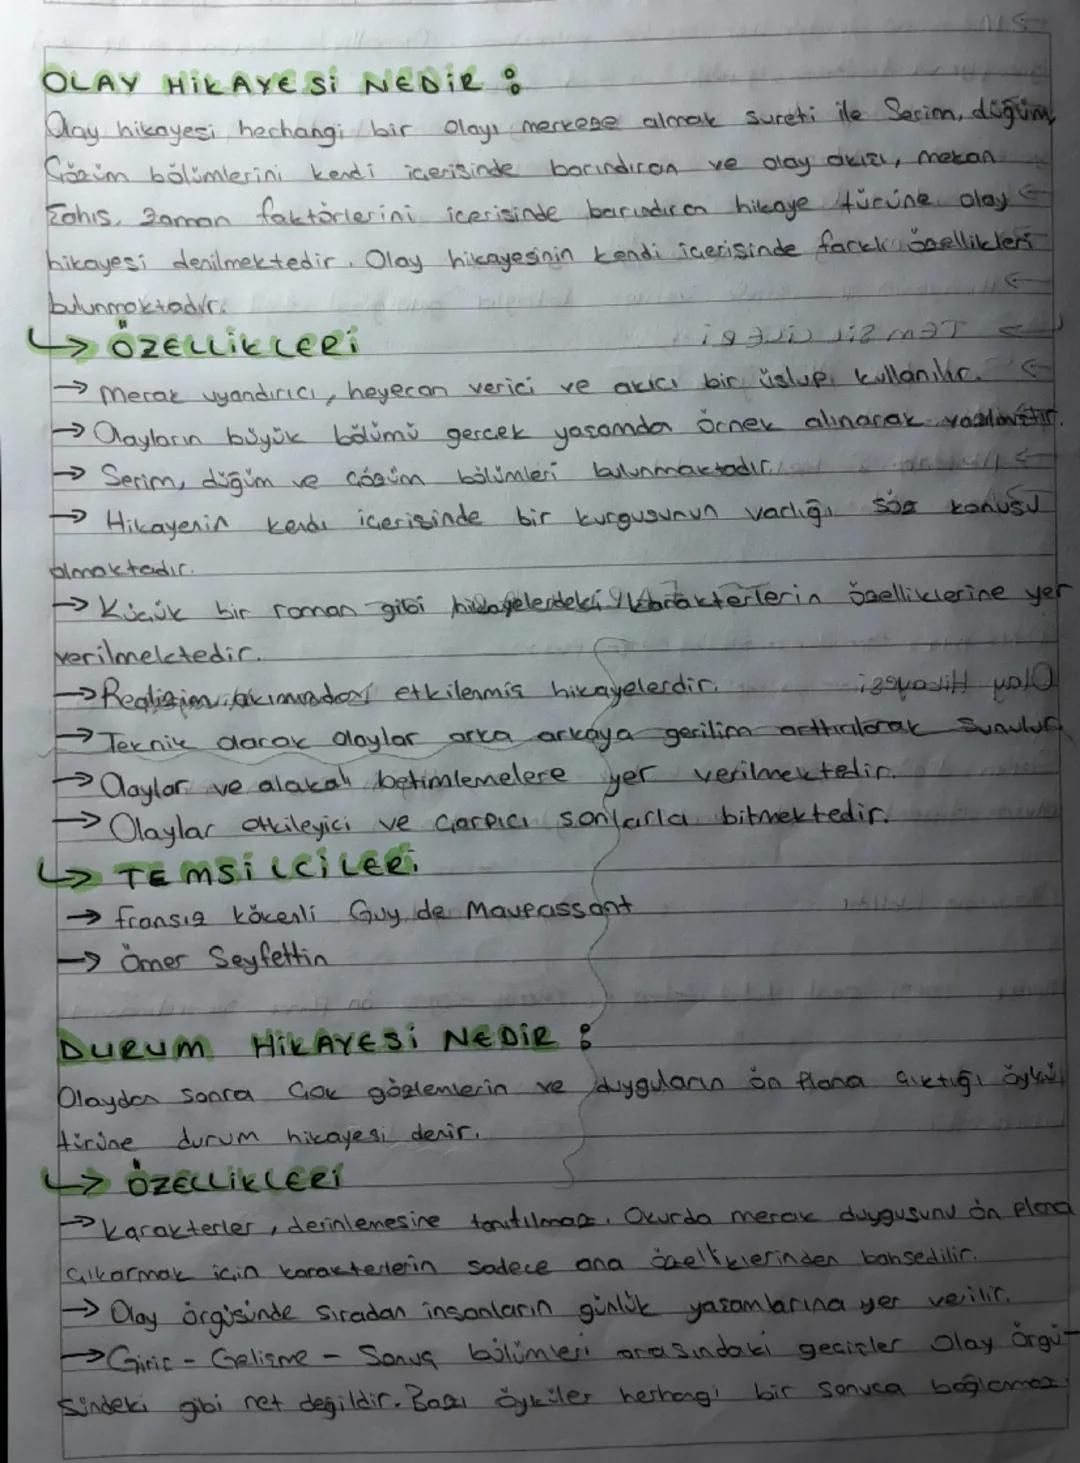 OLAY HİKAYESİ NEDİR :
Olay hikayesi herhangi bir olayı merkeze almak sureti ile Serim, düğüm,
Çözüm bölümlerini kendi içerisinde barındıran ve olay akışı, mekan
şahıs, zaman faktörlerini içerisinde barındıran hikaye türüne olay
hikayesi denilmektedir. Olay hikayesinin kendi içerisinde farklı özellikleri
bulunmaktadır.
↳ ÖZELLİKLERİ
→ Merak uyandırıcı, heyecan verici ve akıcı bir üslup kullanılır.
→ Olayların büyük bölümü gerçek yaşamdan örnek alınarak yazılmıştır.
→ Serim, düğüm ve çözüm bölümleri bulunmaktadır.
→ Hikayenin kendi içerisinde bir kurgusunun varlığı söz konusu
olmaktadır.
→ Küçük bir roman gibi hikayelerdeki karakterlerin özelliklerine yer
verilmektedir.
→ Realizim akımından etkilenmiş hikayelerdir.
→ Teknik olarak olaylar arka arkaya gerilim arttırılarak sunulur.
→ Olaylar ve alakalı betimlemelere yer verilmektedir.
→ Olaylar etkileyici ve çarpıcı sonlarla bitmektedir.
↳ TEMSİLCİLERİ
→ fransız kökenli Guy de Maupassant
→ Ömer Seyfettin
DURUM HİKAYESİ NEDİR :
Olaydan sonra çok gözlemlerin ve duyguların ön plana çıktığı öykü
türüne durum hikayesi denir.
↳ ÖZELLİKLERİ
→ Karakterler, derinlemesine tanıtılmaz. Okurda merak duygusunu ön plana
çıkarmak için karakterlerin sadece ana özelliklerinden bahsedilir.
→ Olay örgüsünde sıradan insanların günlük yaşamlarına yer verilir.
→ Giriş - Gelişme - Sonuç bölümleri arasındaki geçişler olay örgü-
sündeki gibi net değildir. Bazı öyküler herhangi bir sonuca bağlanmaz.